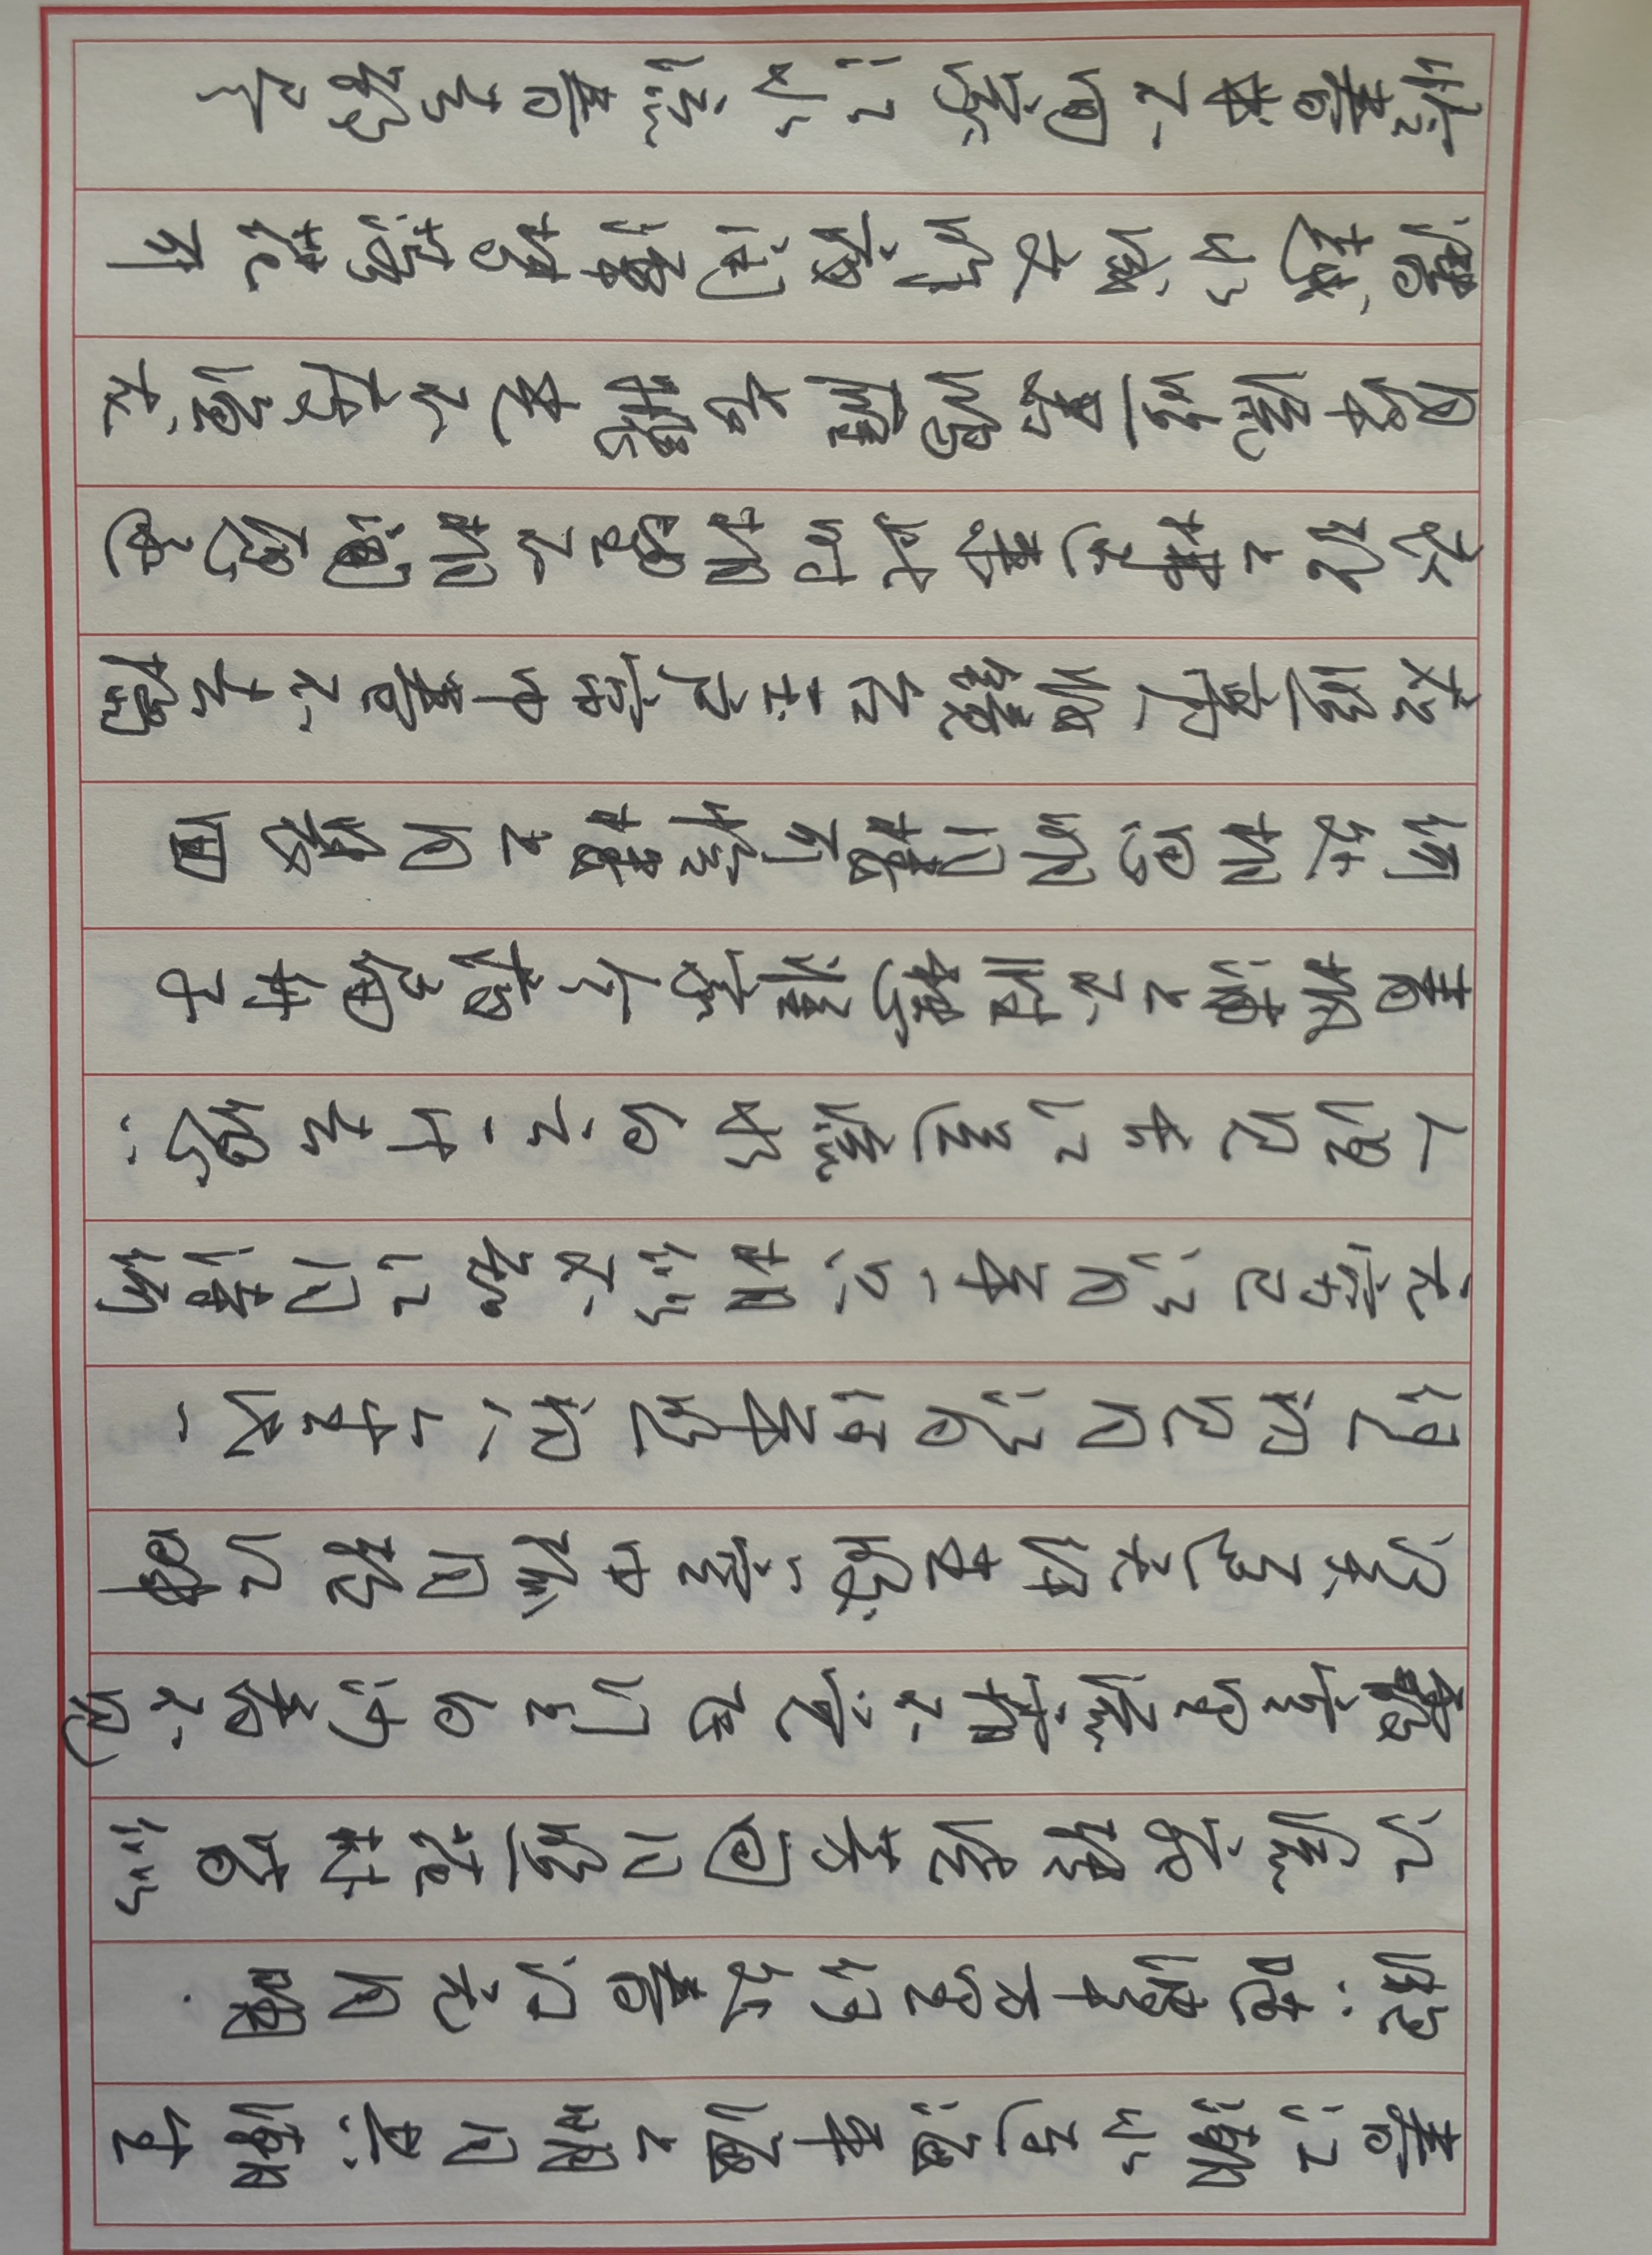 春江潮水连海平海上明月共潮生
滟〻随波千万里何处春江无月明.
江流宛转绕芳甸月照花林皆似
霰空里流霜不觉飞汀上白沙看不见
江天一色无纤尘皎〻空中孤月轮江畔
何人初见月江月何年照初人人生代一
无穷已江月年一只相似不知江月待何
人但见长江送流水白云一片去悠〻
青枫浦上不胜愁谁家今夜扁舟子
何处相思明月楼可怜楼上月裴回
应照离人妆镜台玉户帘中卷不去捣
衣砧上拂还来此时相望不相闻愿逐
月华流照君鸿雁长飞光不度鱼龙
潜跃水成文昨夜闲潭梦落花可
怜春半不回家江水流春去欲尽